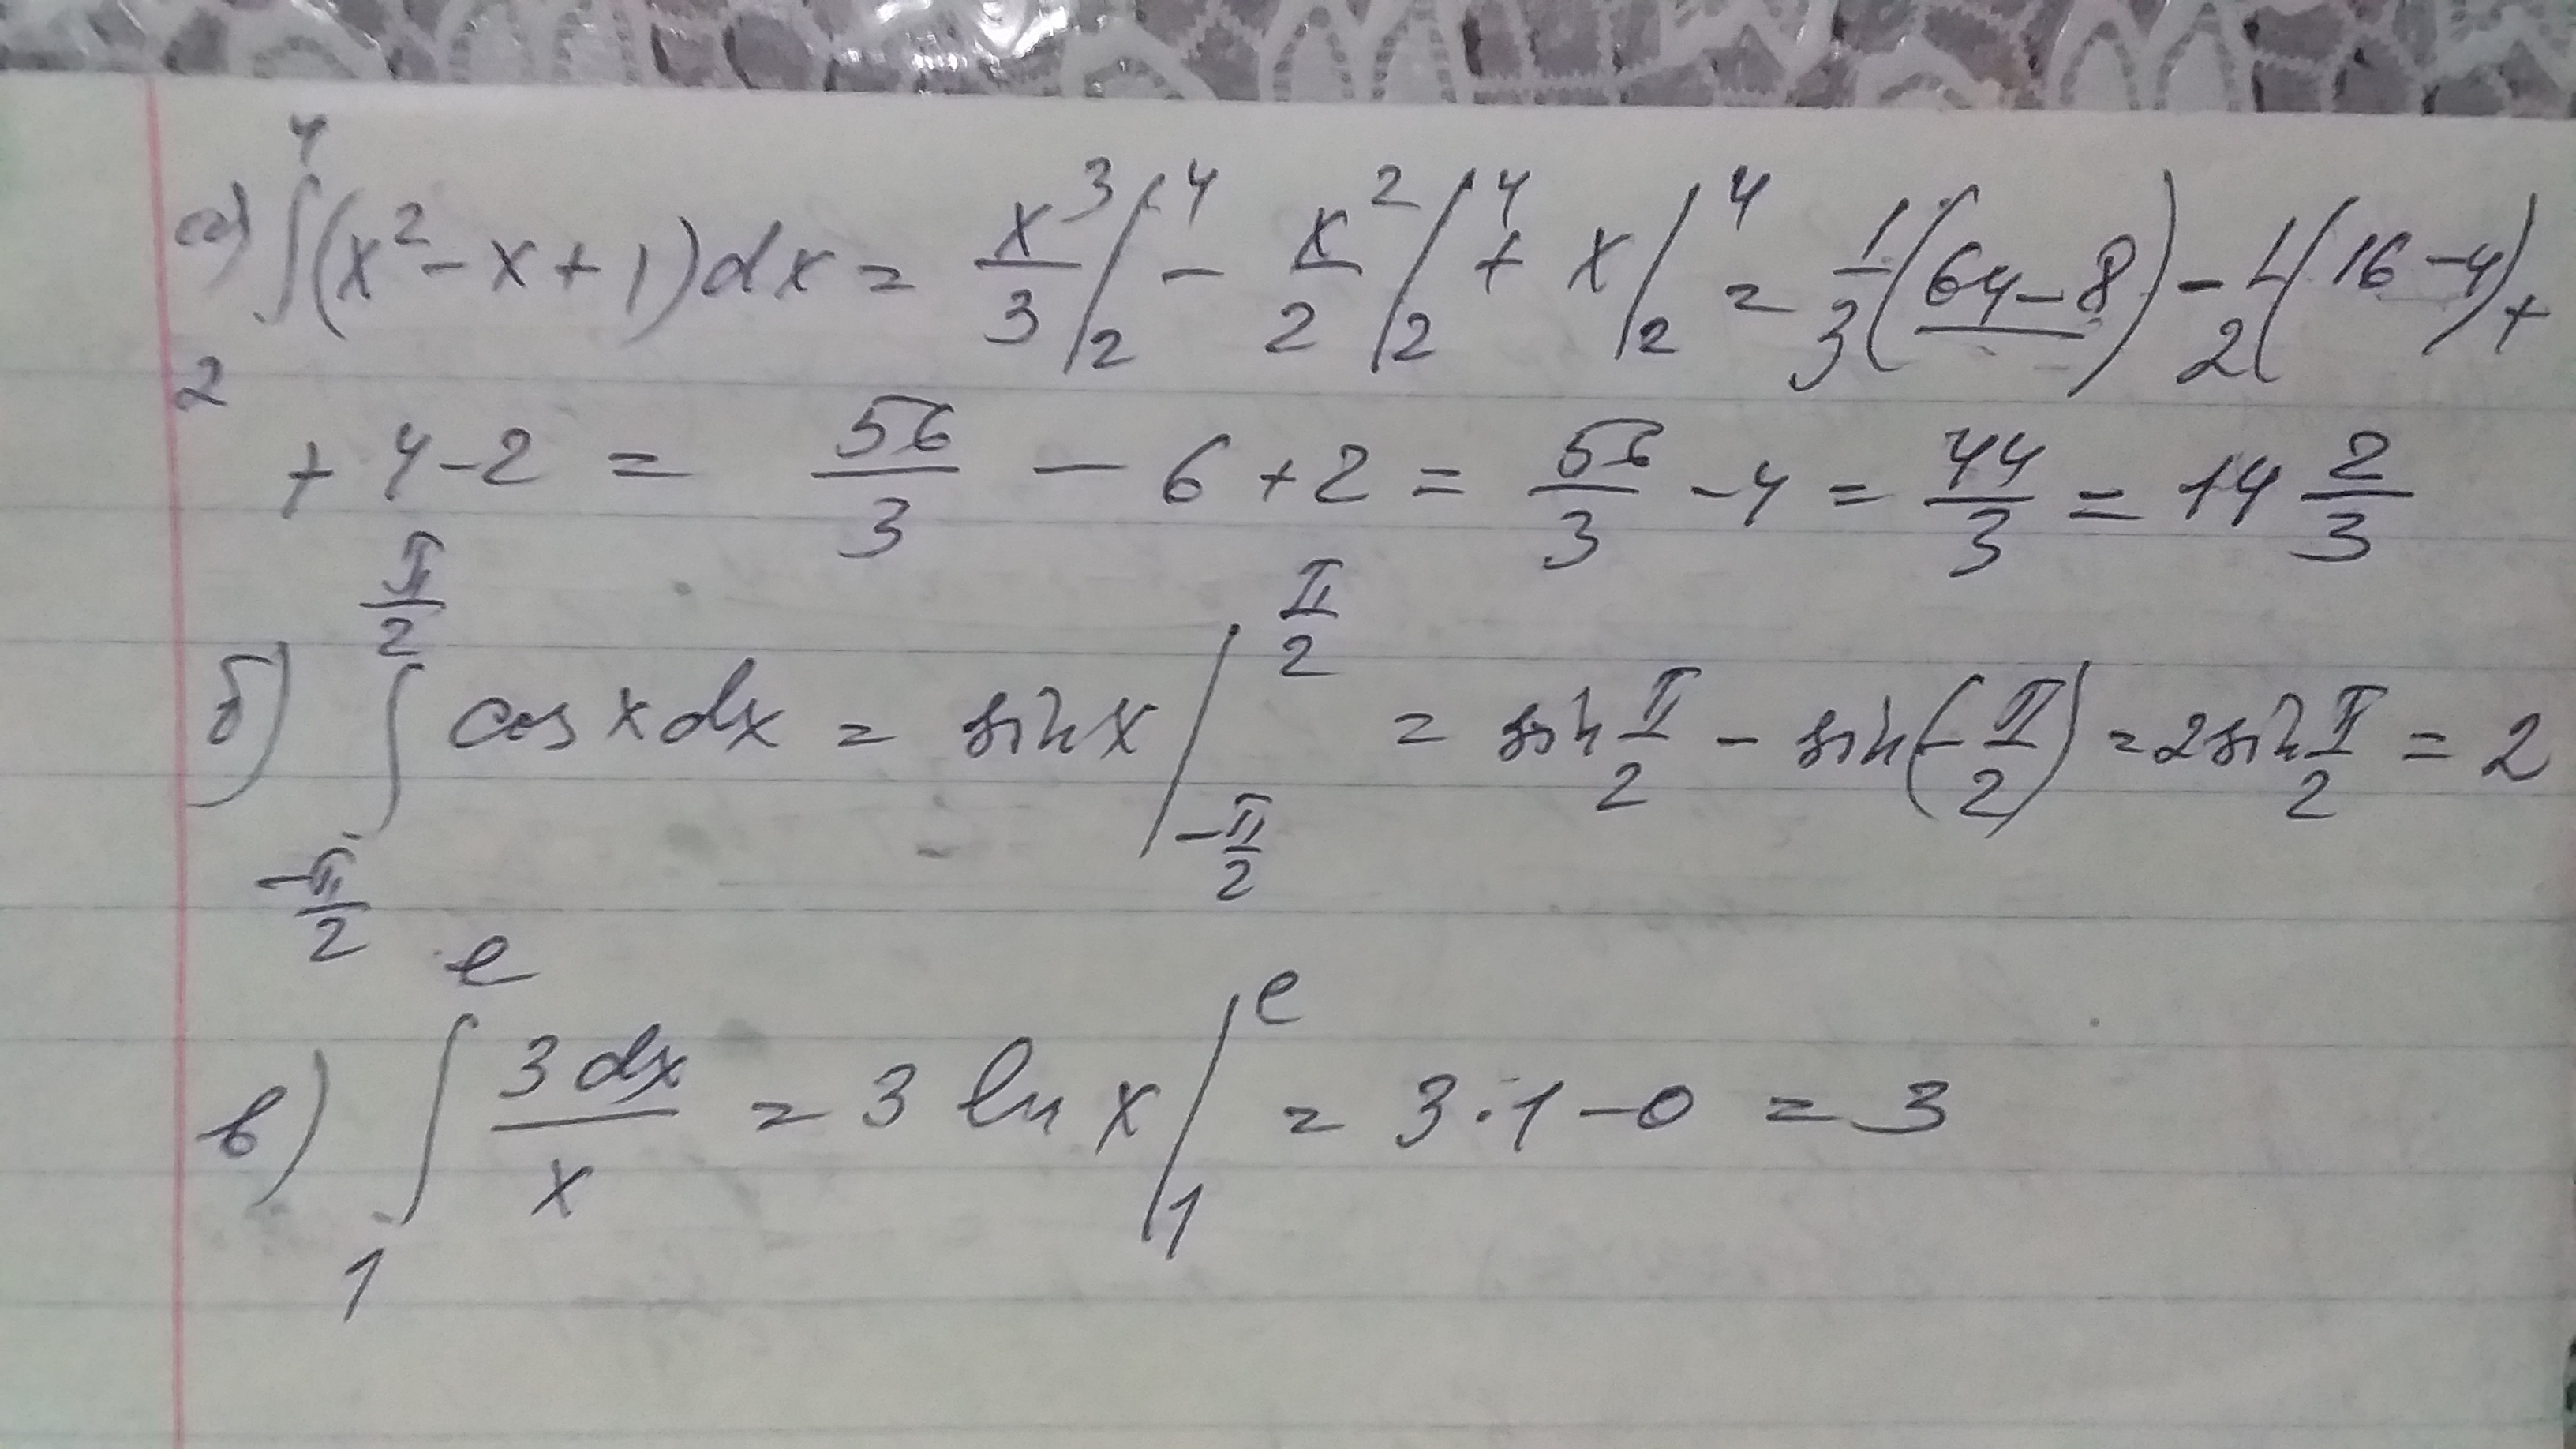 а) ∫₂⁴ (x² - x + 1) dx = x³/3 |₂⁴ - x²/2 |₂⁴ + x |₂⁴ = 1/3 (64 - 8) - 1/2 (16 - 4) +
+ 4 - 2 = 56/3 - 6 + 2 = 56/3 - 4 = 44/3 = 14 2/3
б) ∫_{-π/2}^{π/2} cos x dx = sin x |_{-π/2}^{π/2} = sin π/2 - sin(-π/2) = 2 sin π/2 = 2
в) ∫₁ᵉ 3 dx / x = 3 ln x |₁ᵉ = 3 · 1 - 0 = 3